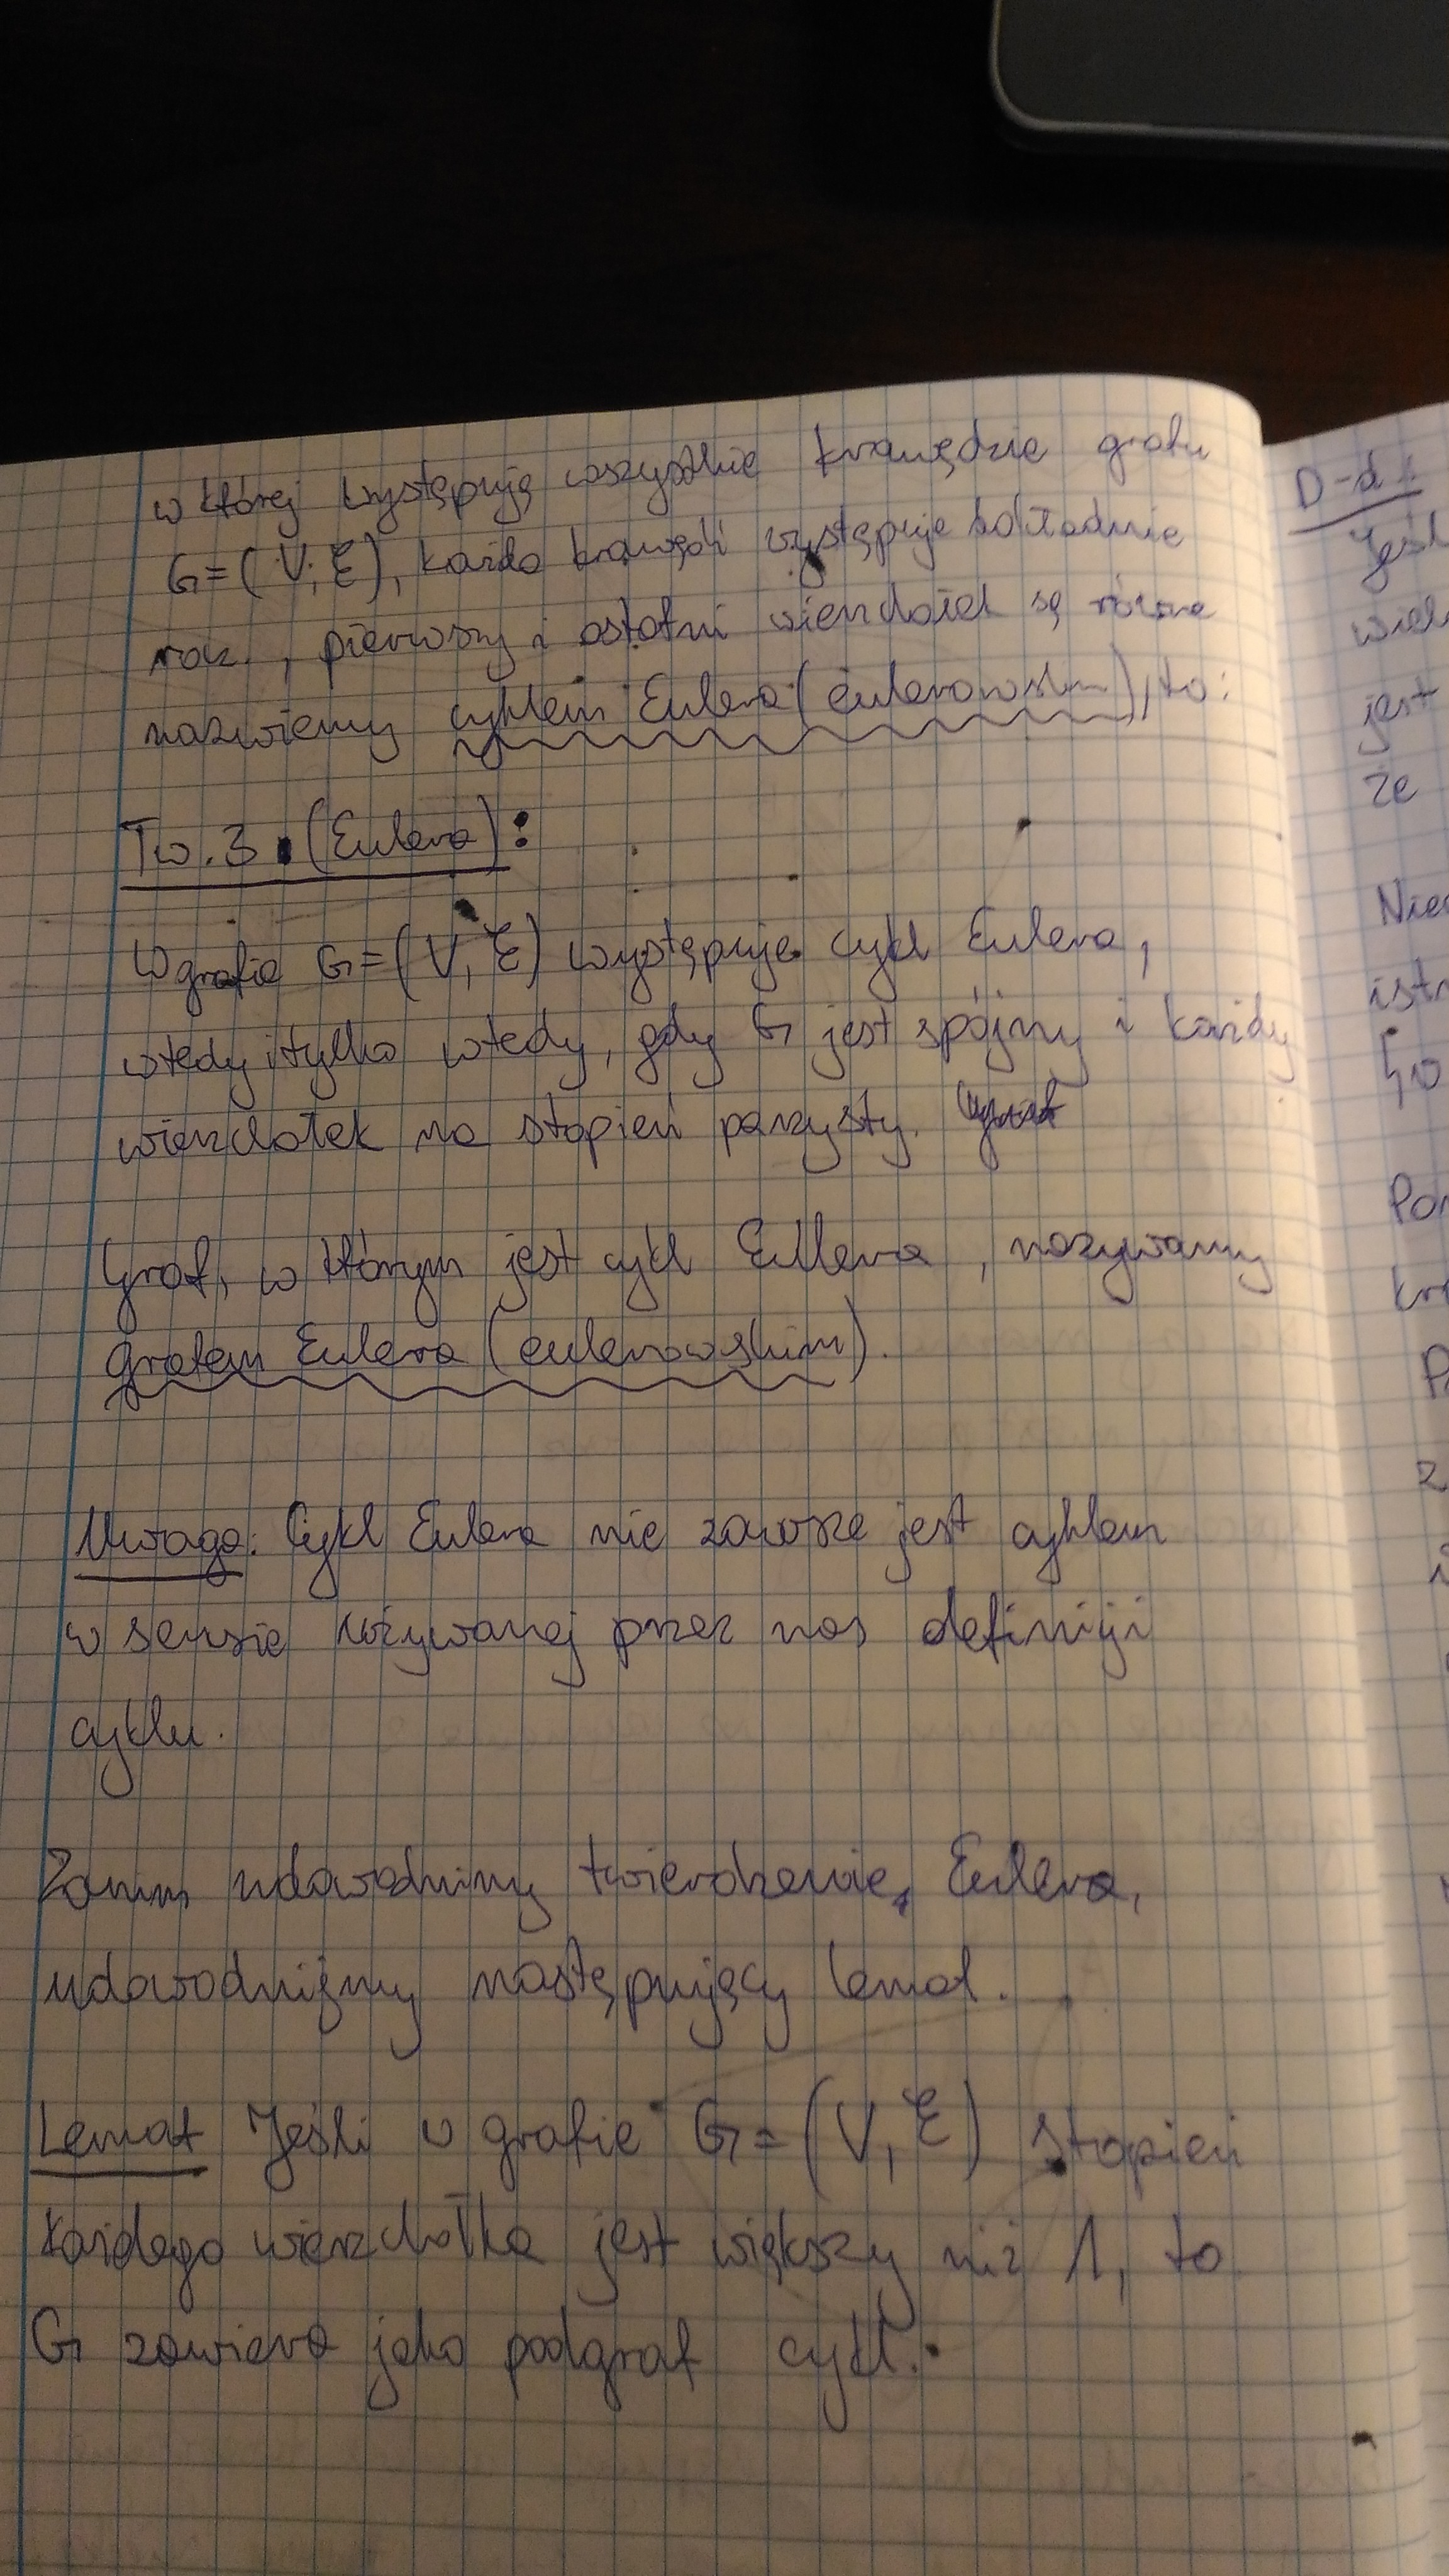 w której występują wszystkie krawędzie grafu
G=(V, E), każda krawędź występuje dokładnie
raz, pierwszy i ostatni wierzchołek są równe
nazwiemy cyklem Eulera (eulerowskim), to:
Tw. 3. (Eulera):
W grafie G=(V, E) występuje cykl Eulera,
wtedy i tylko wtedy, gdy G jest spójny i każdy
wierzchołek ma stopień parzysty.
Graf, w którym jest cykl Eulera, nazywamy
grafem Eulera (eulerowskim).
Uwaga: Cykl Eulera nie zawsze jest cyklem
w sensie używanej przez nas definicji
cyklu.
Zanim udowodnimy twierdzenie Eulera,
udowodnijmy następujący lemat.
Lemat Jeśli w grafie G=(V, E) stopień
każdego wierzchołka jest większy niż 1, to
G zawiera jako podgraf cykl.
D-d:
Jeśl
wier
jest
że
Nie
istn
Po
kr
P
z